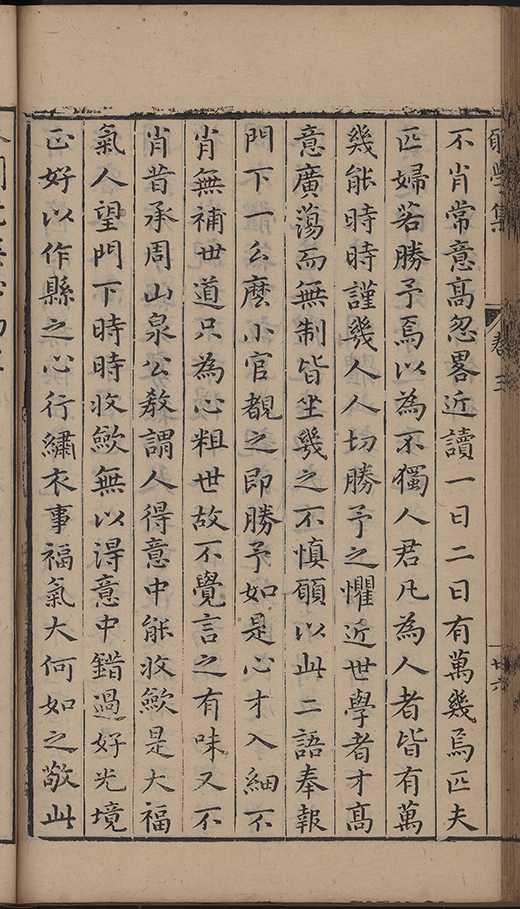 願學集
卷三
廿六
不肖常意高忽畧近讀一日二日有萬幾焉匹夫
匹婦若勝予焉以為不獨人君凡為人者皆有萬
幾能時時謹幾人人切勝予之懼近世學者才高
意廣蕩而無制皆坐幾之不慎願以此二語奉報
門下一么麼小官覩之即勝予如是心才入細不
肖無補世道只為心粗世故不覺言之有味又不
肖昔承周山泉公教謂人得意中能收歛是大福
氣人望門下時時收歛無以得意中錯過好光境
正好以作縣之心行繡衣事福氣大何如之敬此